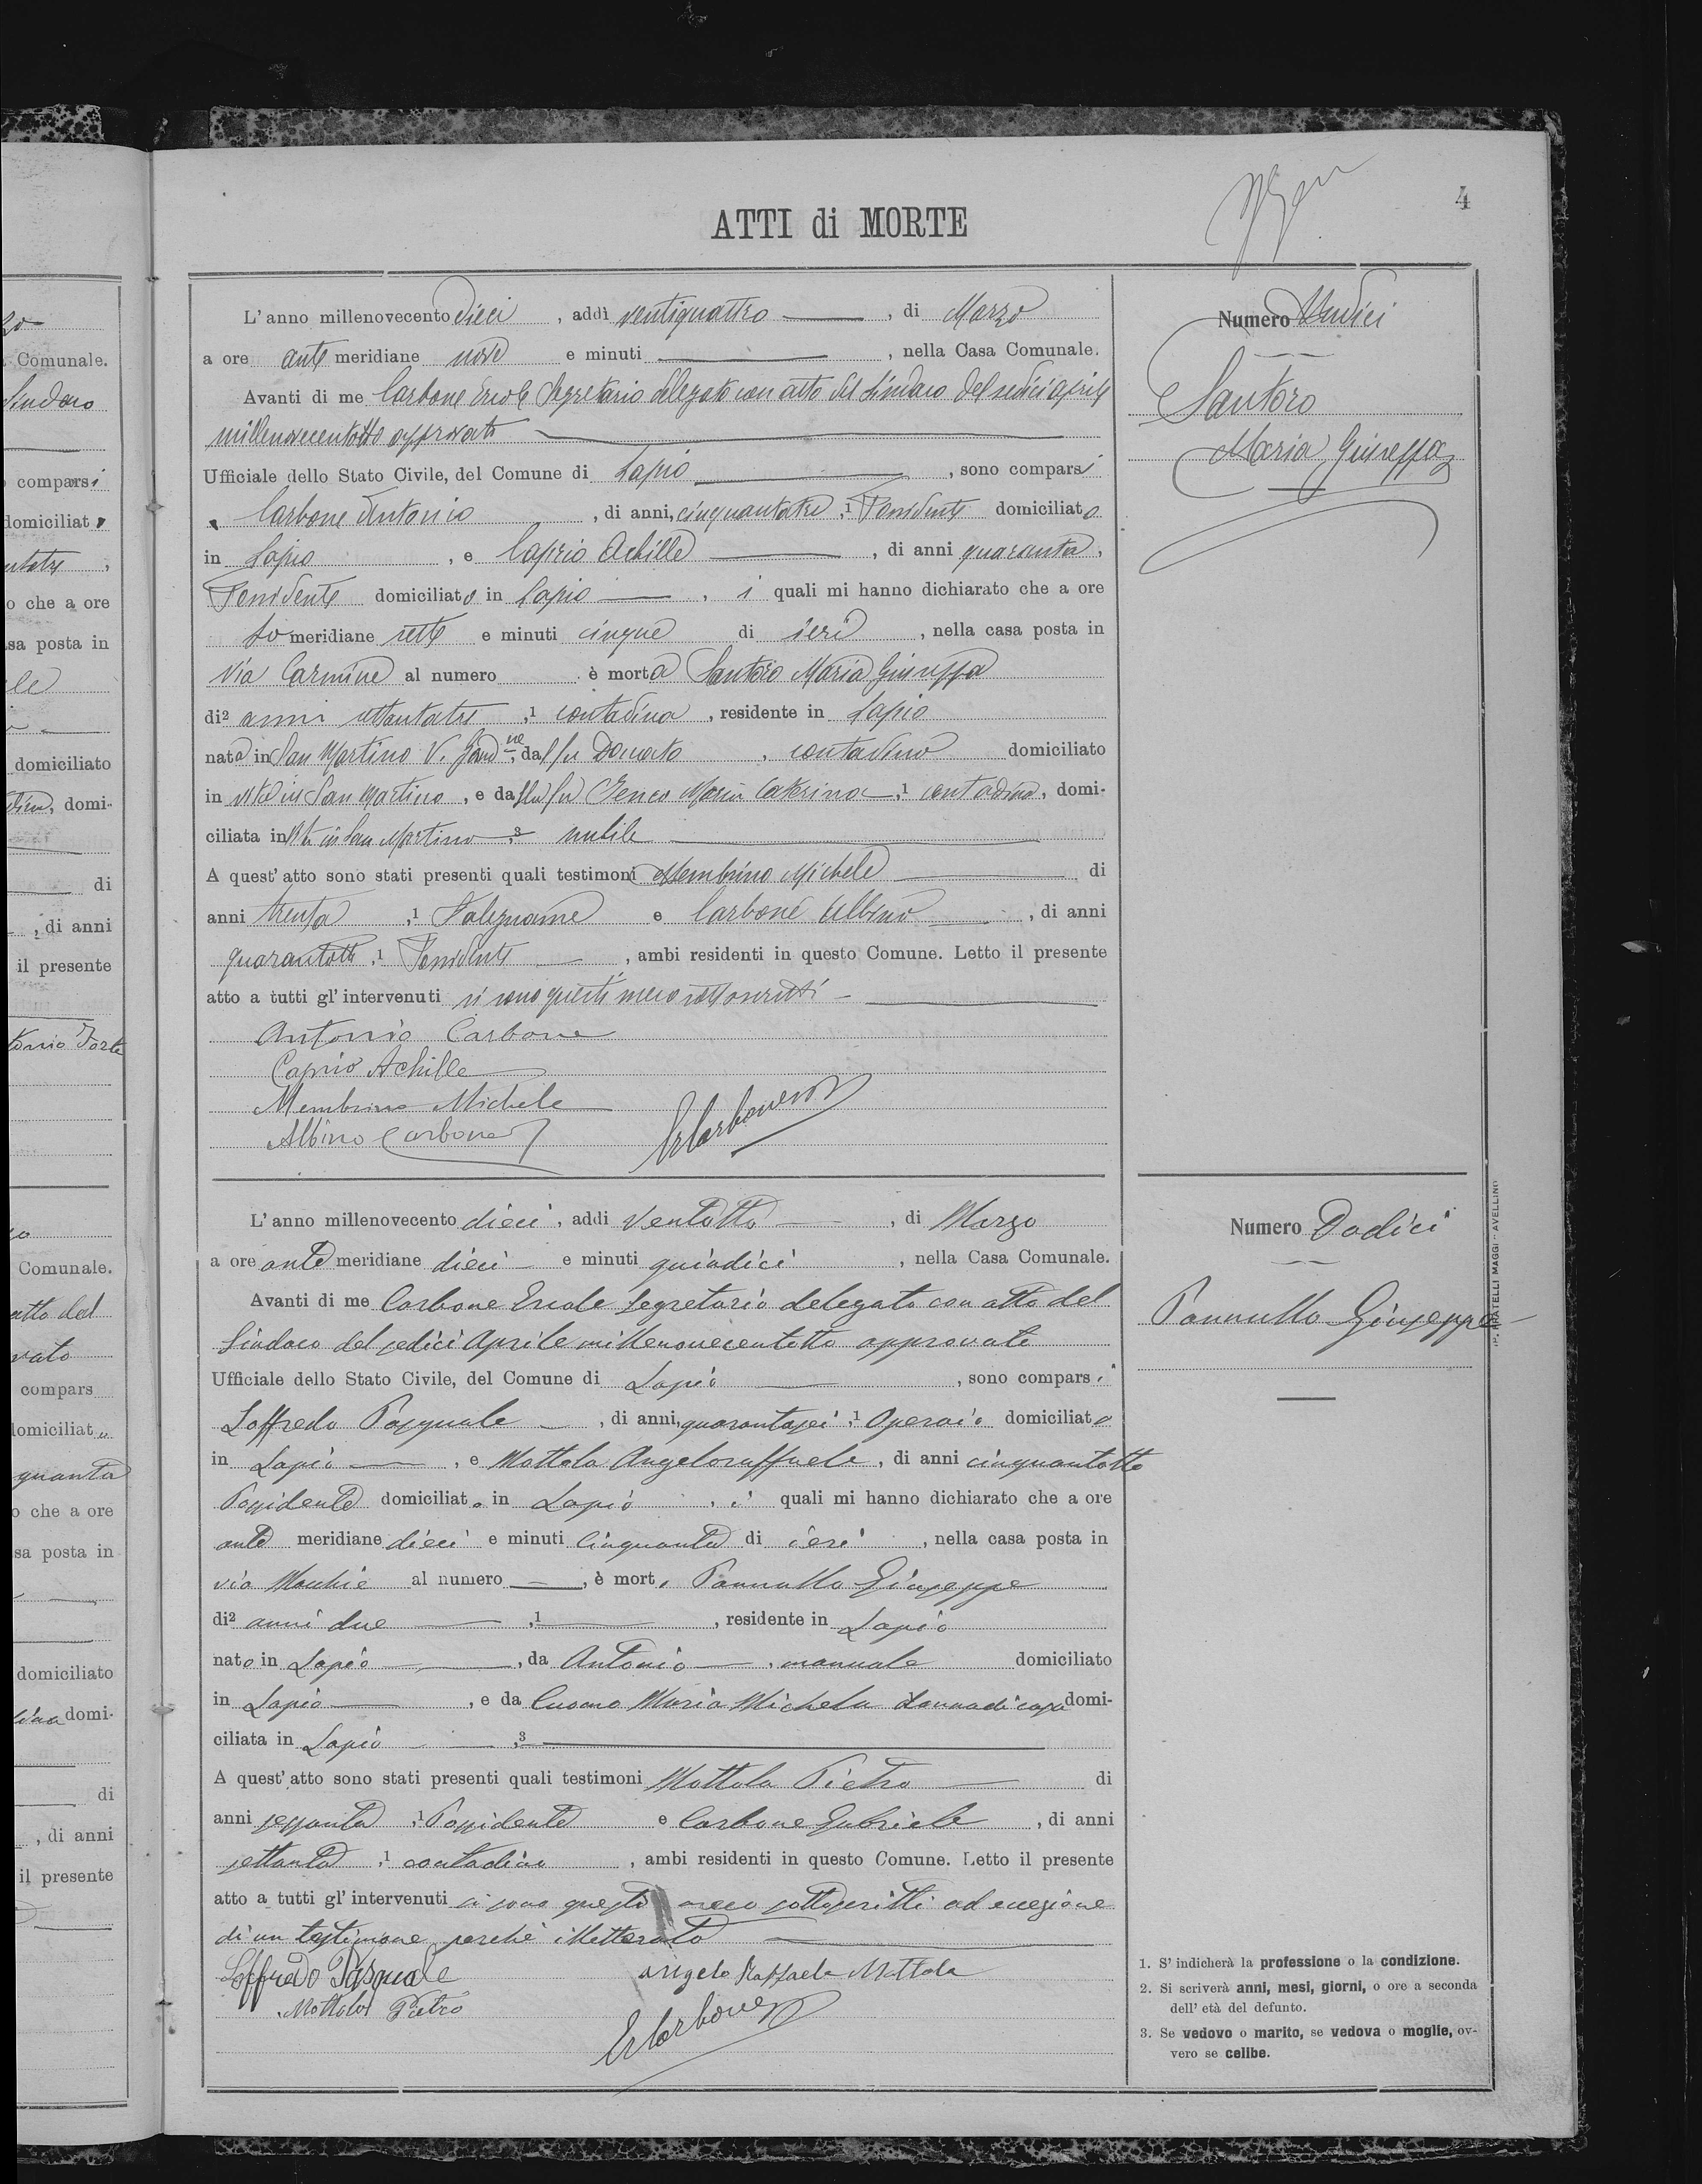 ATTI di MORTE
4
L'anno millenovecento dieci, addì ventiquattro, di Marzo
a ore ante meridiane nove e minuti, nella Casa Comunale.
Avanti di me Carbone Ercole Segretario delegato con atto del Sindaco del sedici aprile
millenovecentotto approvato
Ufficiale dello Stato Civile, del Comune di Lapio, sono comparsi
Carbone Antonio, di anni, cinquantatre,1 Possidente domiciliato
in Lapio, e Caprio Achille, di anni quaranta,
Possidente domiciliato in Lapio, i quali mi hanno dichiarato che a ore
po meridiane sette e minuti cinque di ieri, nella casa posta in
Via Carmine al numero è morta Santoro Maria Giuseppa
di2 anni ottantatre,1 contadina, residente in Lapio
nata in San Martino V. Gaud.ne, dal fu Donato, contadino domiciliato
in vita in San Martino, e dalla fu Genco Maria Caterina,1 contadina, domi-
ciliata in vita in San Martino,3 nubile
A quest'atto sono stati presenti quali testimoni Membrino Michele di
anni trenta,1 Falegname e Carbone Albino, di anni
quarantotto,1 Possidente, ambi residenti in questo Comune. Letto il presente
atto a tutti gl'intervenuti si sono questi meco sottoscritti
Antonio Carbone
Caprio Achille
Membrino Michele
Albino Carbone
ErCarbone
Numero Undici
Santoro
Maria Giuseppa
L'anno millenovecento dieci, addì ventotto, di Marzo
a ore ante meridiane dieci e minuti quindici, nella Casa Comunale.
Avanti di me Carbone Ercole Segretario delegato con atto del
Sindaco del sedici Aprile millenovecentotto approvato
Ufficiale dello Stato Civile, del Comune di Lapio, sono comparsi
Loffredo Pasquale, di anni, quarantasei,1 Operaio domiciliato
in Lapio, e Mottola Angeloraffaele, di anni cinquantotto
Possidente domiciliato in Lapio, i quali mi hanno dichiarato che a ore
ante meridiane dieci e minuti cinquanta di ieri, nella casa posta in
via Macchie al numero, è morto Pannullo Giuseppe
di2 anni due,1, residente in Lapio
nato in Lapio, da Antonio, manuale domiciliato
in Lapio, e da Cuomo Maria Michela donna di casa domi-
ciliata in Lapio,3
A quest'atto sono stati presenti quali testimoni Mottola Pietro di
anni sessanta,1 Possidente e Carbone Gabriele, di anni
settanta,1 contadino, ambi residenti in questo Comune. Letto il presente
atto a tutti gl'intervenuti si sono questi meco sottoscritti ad eccezione
di un testimone perchè illetterato
Loffredo Pasquale
Angelo Raffaele Mottola
Mottola Pietro
ErCarbone
Numero Dodici
Pannullo Giuseppe
FRATELLI MAGGI - AVELLINO
1. S'indicherà la professione o la condizione.
2. Si scriverà anni, mesi, giorni, o ore a seconda
dell'età del defunto.
3. Se vedovo o marito, se vedova o moglie, ov-
vero se celibe.
Comunale.
Sindaco
comparsi
domiciliato
o che a ore
sa posta in
domiciliato
domi-
di
, di anni
il presente
Comunale.
atto del
compars
domiciliato
quanta
o che a ore
sa posta in
domiciliato
domi-
di
, di anni
il presente